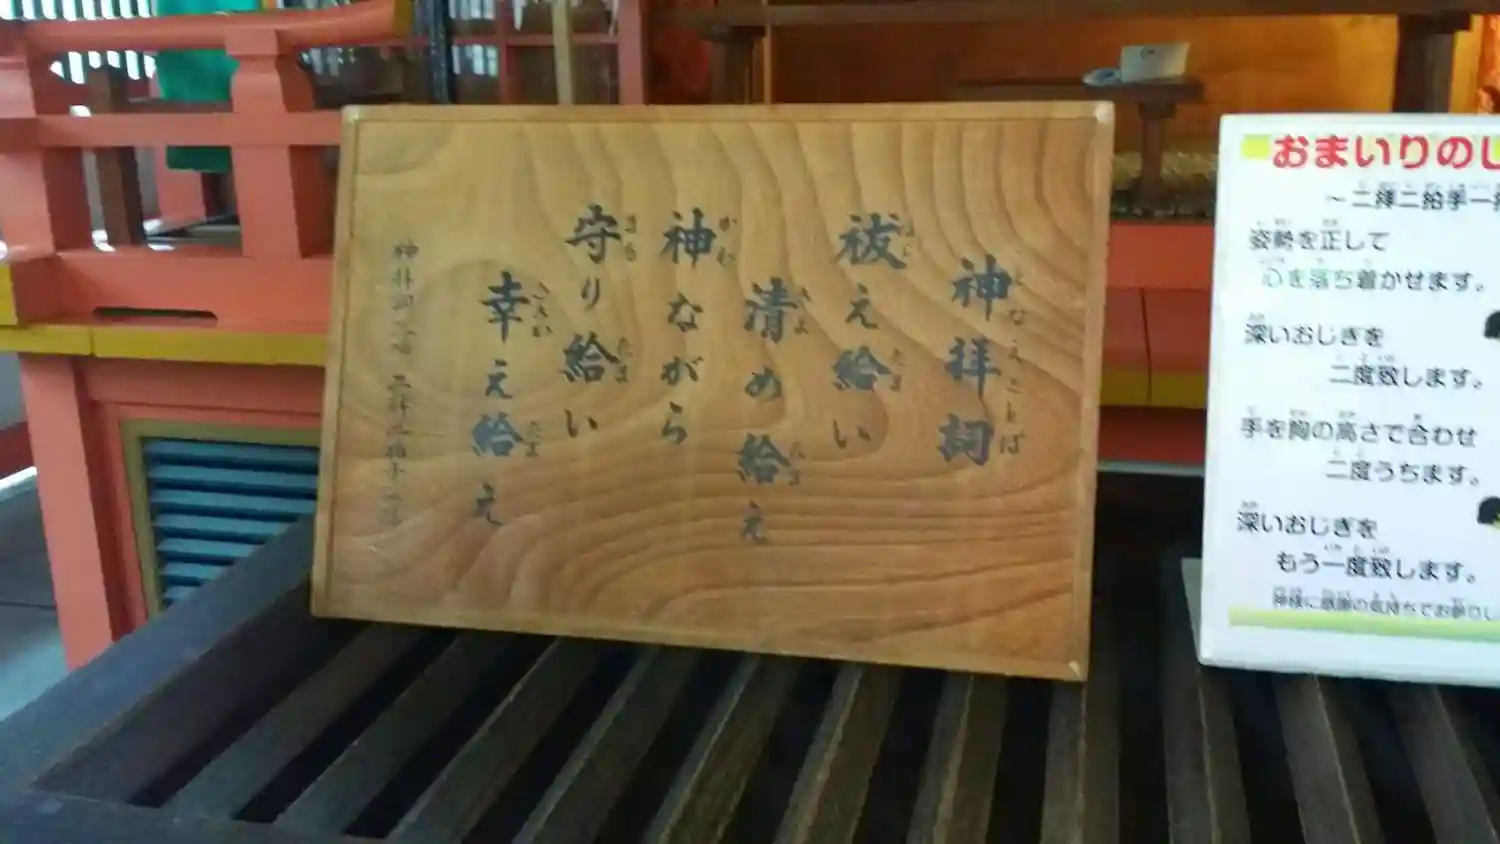 神拝詞
祓え給い
清め給え
神ながら
守り給い
幸え給え
おまいりのし
～二拝二拍手一拝
姿勢を正して
心を落ち着かせます。
深いおじぎを
二度致します。
手を胸の高さで合わせ
二度うちます。
深いおじぎを
もう一度致します。
神様に感謝の気持ちでお参りし